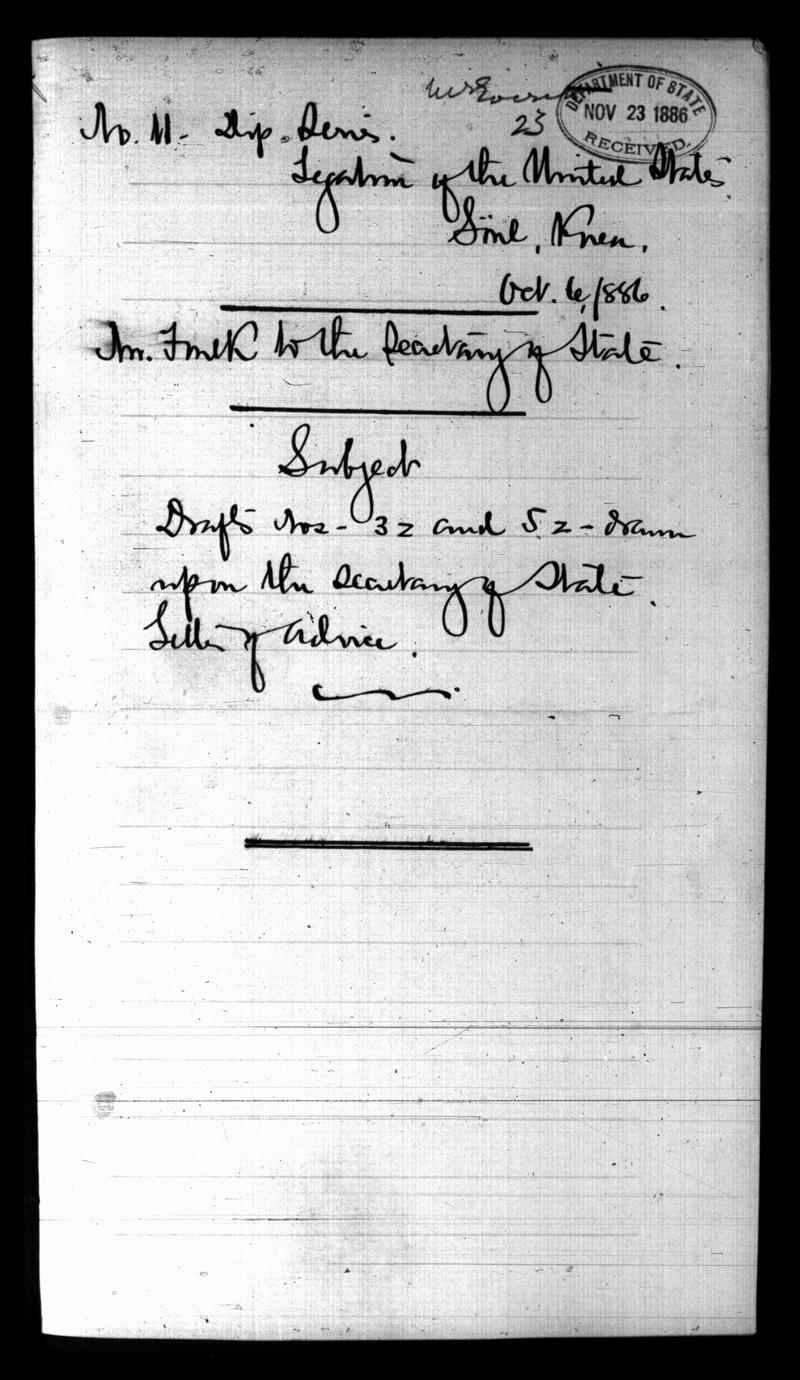 DEPARTMENT OF STATE
NOV 23 1886
RECEIVED.
23
No. 11 - Dip. Series.
Legation of the United States
Söul, Korea.
Oct. 6, 1886.
Mr. Foulk to the Secretary of State.
Subject
Drafts Nos - 32 and 52 - drawn
upon the Secretary of State.
Letter of Advice.